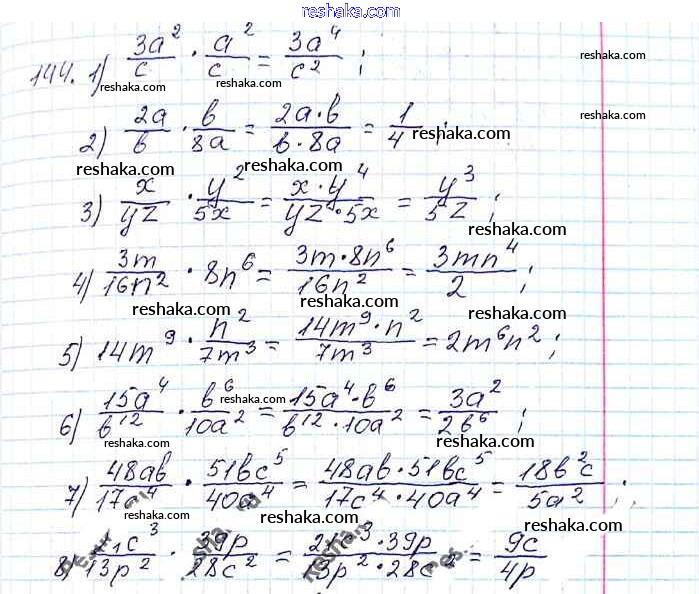 reshaka.com
144. 1) 3a²/c · a²/c = 3a⁴/c² ;
reshaka.com reshaka.com reshaka.com
2) 2a/b · b/8a = 2a·b/b·8a = 1/4 ;
reshaka.com reshaka.com reshaka.com
3) x/yz · y²/5x = x·y⁴/yz·5x = y³/5z ;
reshaka.com reshaka.com reshaka.com
4) 3m/16n² · 8n⁶ = 3m·8n⁶/16n² = 3mn⁴/2 ;
reshaka.com reshaka.com reshaka.com
5) 14m⁹ · n²/7m³ = 14m⁹·n²/7m³ = 2m⁶n² ;
reshaka.com reshaka.com reshaka.com
6) 15a⁴/b¹² · b⁶/10a² = 15a⁴·b⁶/b¹²·10a² = 3a²/2b⁶ ;
reshaka.com reshaka.com reshaka.com
7) 48ab/17c⁴ · 51bc⁵/40a⁴ = 48ab·51bc⁵/17c⁴·40a⁴ = 18b²c/5a² ;
reshaka.com reshaka.com
8) c³/13p² · 39p/28c² = 21c³·39p/13p²·28c² = 9c/4p